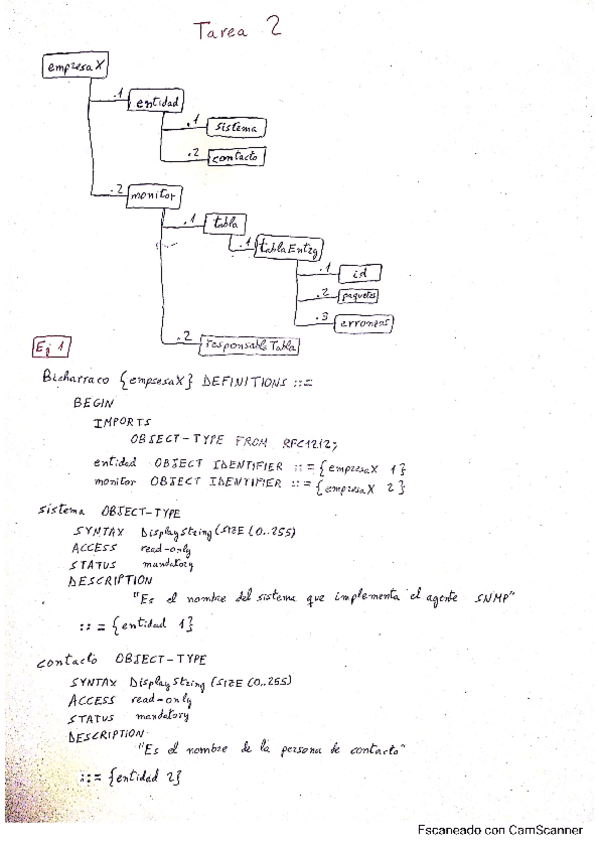 Tarea 2
empresaX
.1 entidad
.1 sistema
.2 contacto
.2 monitor
.1 tabla
.1 tablaEntry
.1 id
.2 paquetes
.3 erroneas
.2 responsableTabla
Ej 1
Bicharraco {empresaX} DEFINITIONS ::=
BEGIN
IMPORTS
OBJECT-TYPE FROM RFC1212;
entidad OBJECT IDENTIFIER ::= {empresaX 1}
monitor OBJECT IDENTIFIER ::= {empresaX 2}
sistema OBJECT-TYPE
SYNTAX DisplayString (SIZE (0..255)
ACCESS read-only
STATUS mandatory
DESCRIPTION
"Es el nombre del sistema que implementa el agente SNMP"
::= {entidad 1}
contacto OBJECT-TYPE
SYNTAX DisplayString (SIZE (0..255)
ACCESS read-only
STATUS mandatory
DESCRIPTION
"Es el nombre de la persona de contacto"
::= {entidad 2}
Escaneado con CamScanner